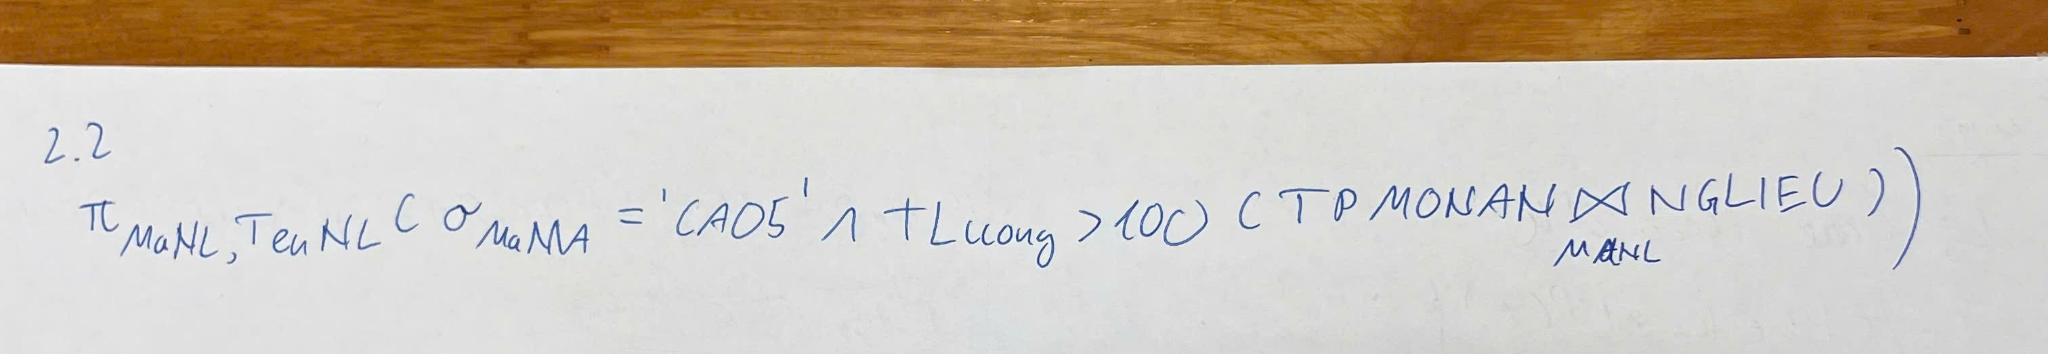 2.2
π MaNL, TenNL ( σ MaMA = 'CA05' ∧ TLuong > 100 ( TPMONAN ⋈ NGLIEU ) )
MANL